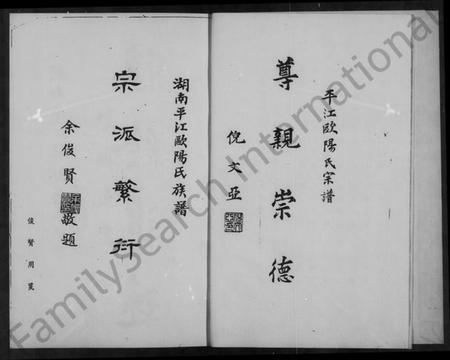 平江歐陽氏宗譜
尊親崇德
倪文亞
湖南平江歐陽氏族譜
宗派繁衍
余俊賢敬題
俊賢用箋
FamilySearch International